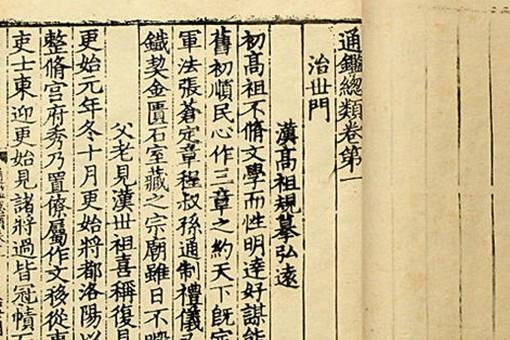 通鑑總類卷第一
治丗門
漢高祖規摹弘遠
初高祖不脩文學而性明達好謀能
舊初順民心作三章之約天下旣定
軍法張蒼定章程叔孫通制禮儀
鐵契金匱石室藏之宗廟雖日不暇
父老見漢丗祖喜稱復見
更始元年冬十月更始將都洛陽以
整脩宮府秀乃置僚屬作文移從事
吏士東迎更始見諸將過皆冠幘